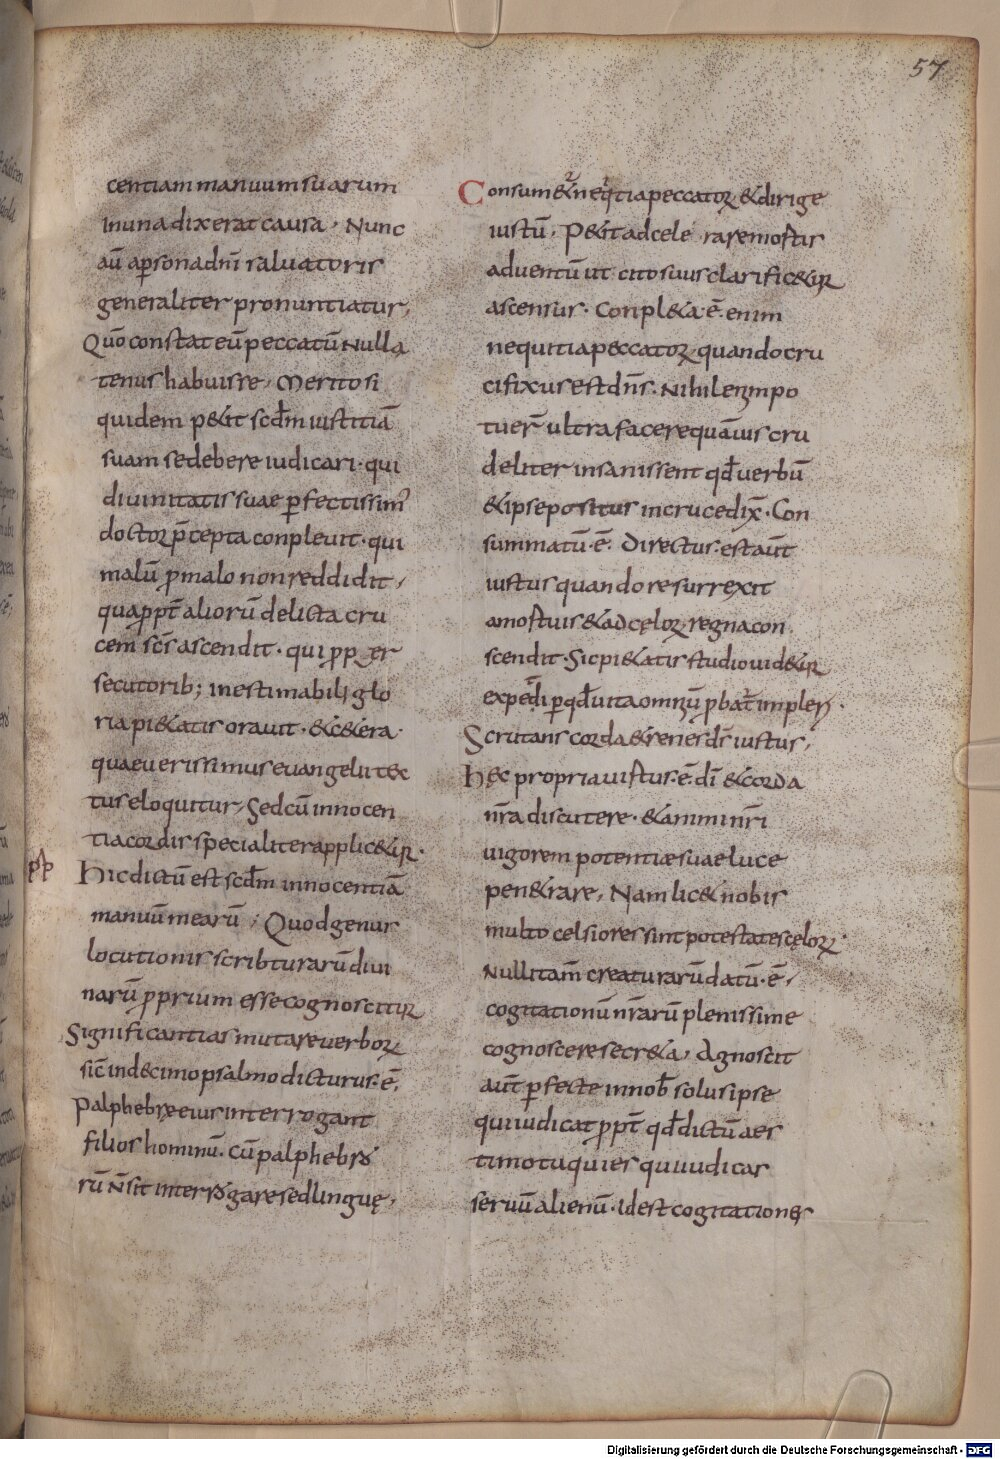 57
centiam manuum suarum
In una dixerat causa. Nunc
aū a persona dn̄i saluatoris
generaliter pronuntiatur,
Quō constat eū peccatū nulla
tenus habuisse. Merito si
quidem p&it scd̄m iustitiā
suam se debere iudicari. qui
diuinitatis suae perfectissim'
doctor p̄cepta conpleuit. qui
malū pro malo non reddidit,
qua ppt̄ aliorū delicta cru
cem sc̄s ascendit. qui pro per
secutorib; inestimabili glo
ria pi&atis orauit. & c&era
quae uerissimus euangelii tex
tus eloquitur, Sed cū innocen
tia cordis specialiter applic&ur.
Hic dictū est scd̄m innocentiā
manuū mearū; Quod genus
locutionis scribturarū diui
narū proprium esse cognoscitur
Significantias mutare uerborum
sic̄ in decimo psalmo dicturus.ē.
Palphebrę eius interrogant
filios hominū. Cū palphebra
rū n̄ sit interrogare sed linguę,
Consum&ur nequitia peccatorum & dirige
iustū. P&it ad cele rare mostis
aduentū ut cito suus clarific&ur
ascensus. Conpl&a.ē. enim
nequitia peccatorum quando cru
cifixus est dn̄s. Nihil enim po
tuer̄ ultra facere quāuis cru
deliter insanissent qd̄ uerbū
& ipse positus in cruce dix̄. Con
summatū.ē. Directus est aūt
iustus quando resurrexit
a mostuis & ad cęlorum regna con
scendit. Sic pi&atis studio uid&ur
expedi per qd̄ uita omnium p bat̄ impleri.
Scrutans corda & renes ds̄ iustus,
Hęc propria uistus.ē. dī & corda
nr̄a discutere. & animi nr̄i
uigorem potentiæ suae luce
pen&rare, Nam lic& nobis
multo celsiores sint potestates cęlorum.
Nulli tam̄ creaturarū datū.ē.
cogitationū nr̄arū plenissime
cognoscere secr&a, Agnoscit
aūt perfecte in nob̄ solus ipse
qui iudicat ppt̄ qd̄ dictū a es
timo tu qui es qui iudicas
seruū alienū. id est cogitationes
Digitalisierung gefördert durch die Deutsche Forschungsgemeinschaft - DFG